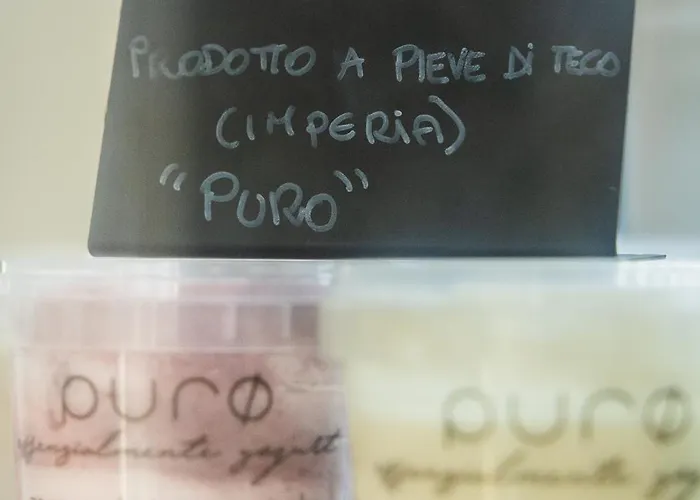 PRODOTTO A PIEVE Di TECO
(IMPERiA)
"PURO"
purø purø
essenzialmente yogurt